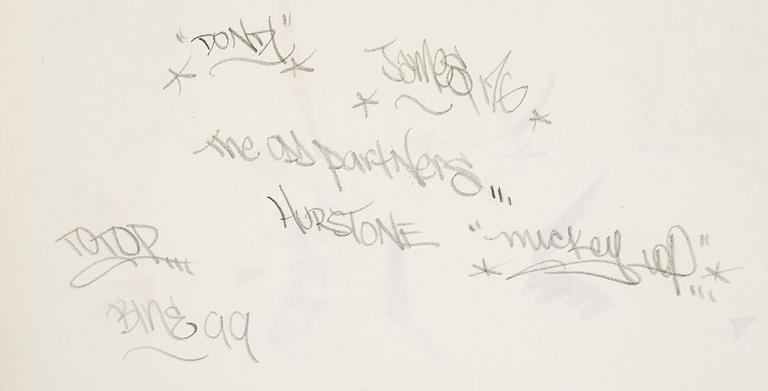 "DONDI"
JAMES 176
the odd partners,,,
HURSTONE
"mickey up",,,
TOTOP,,,
BINE 99